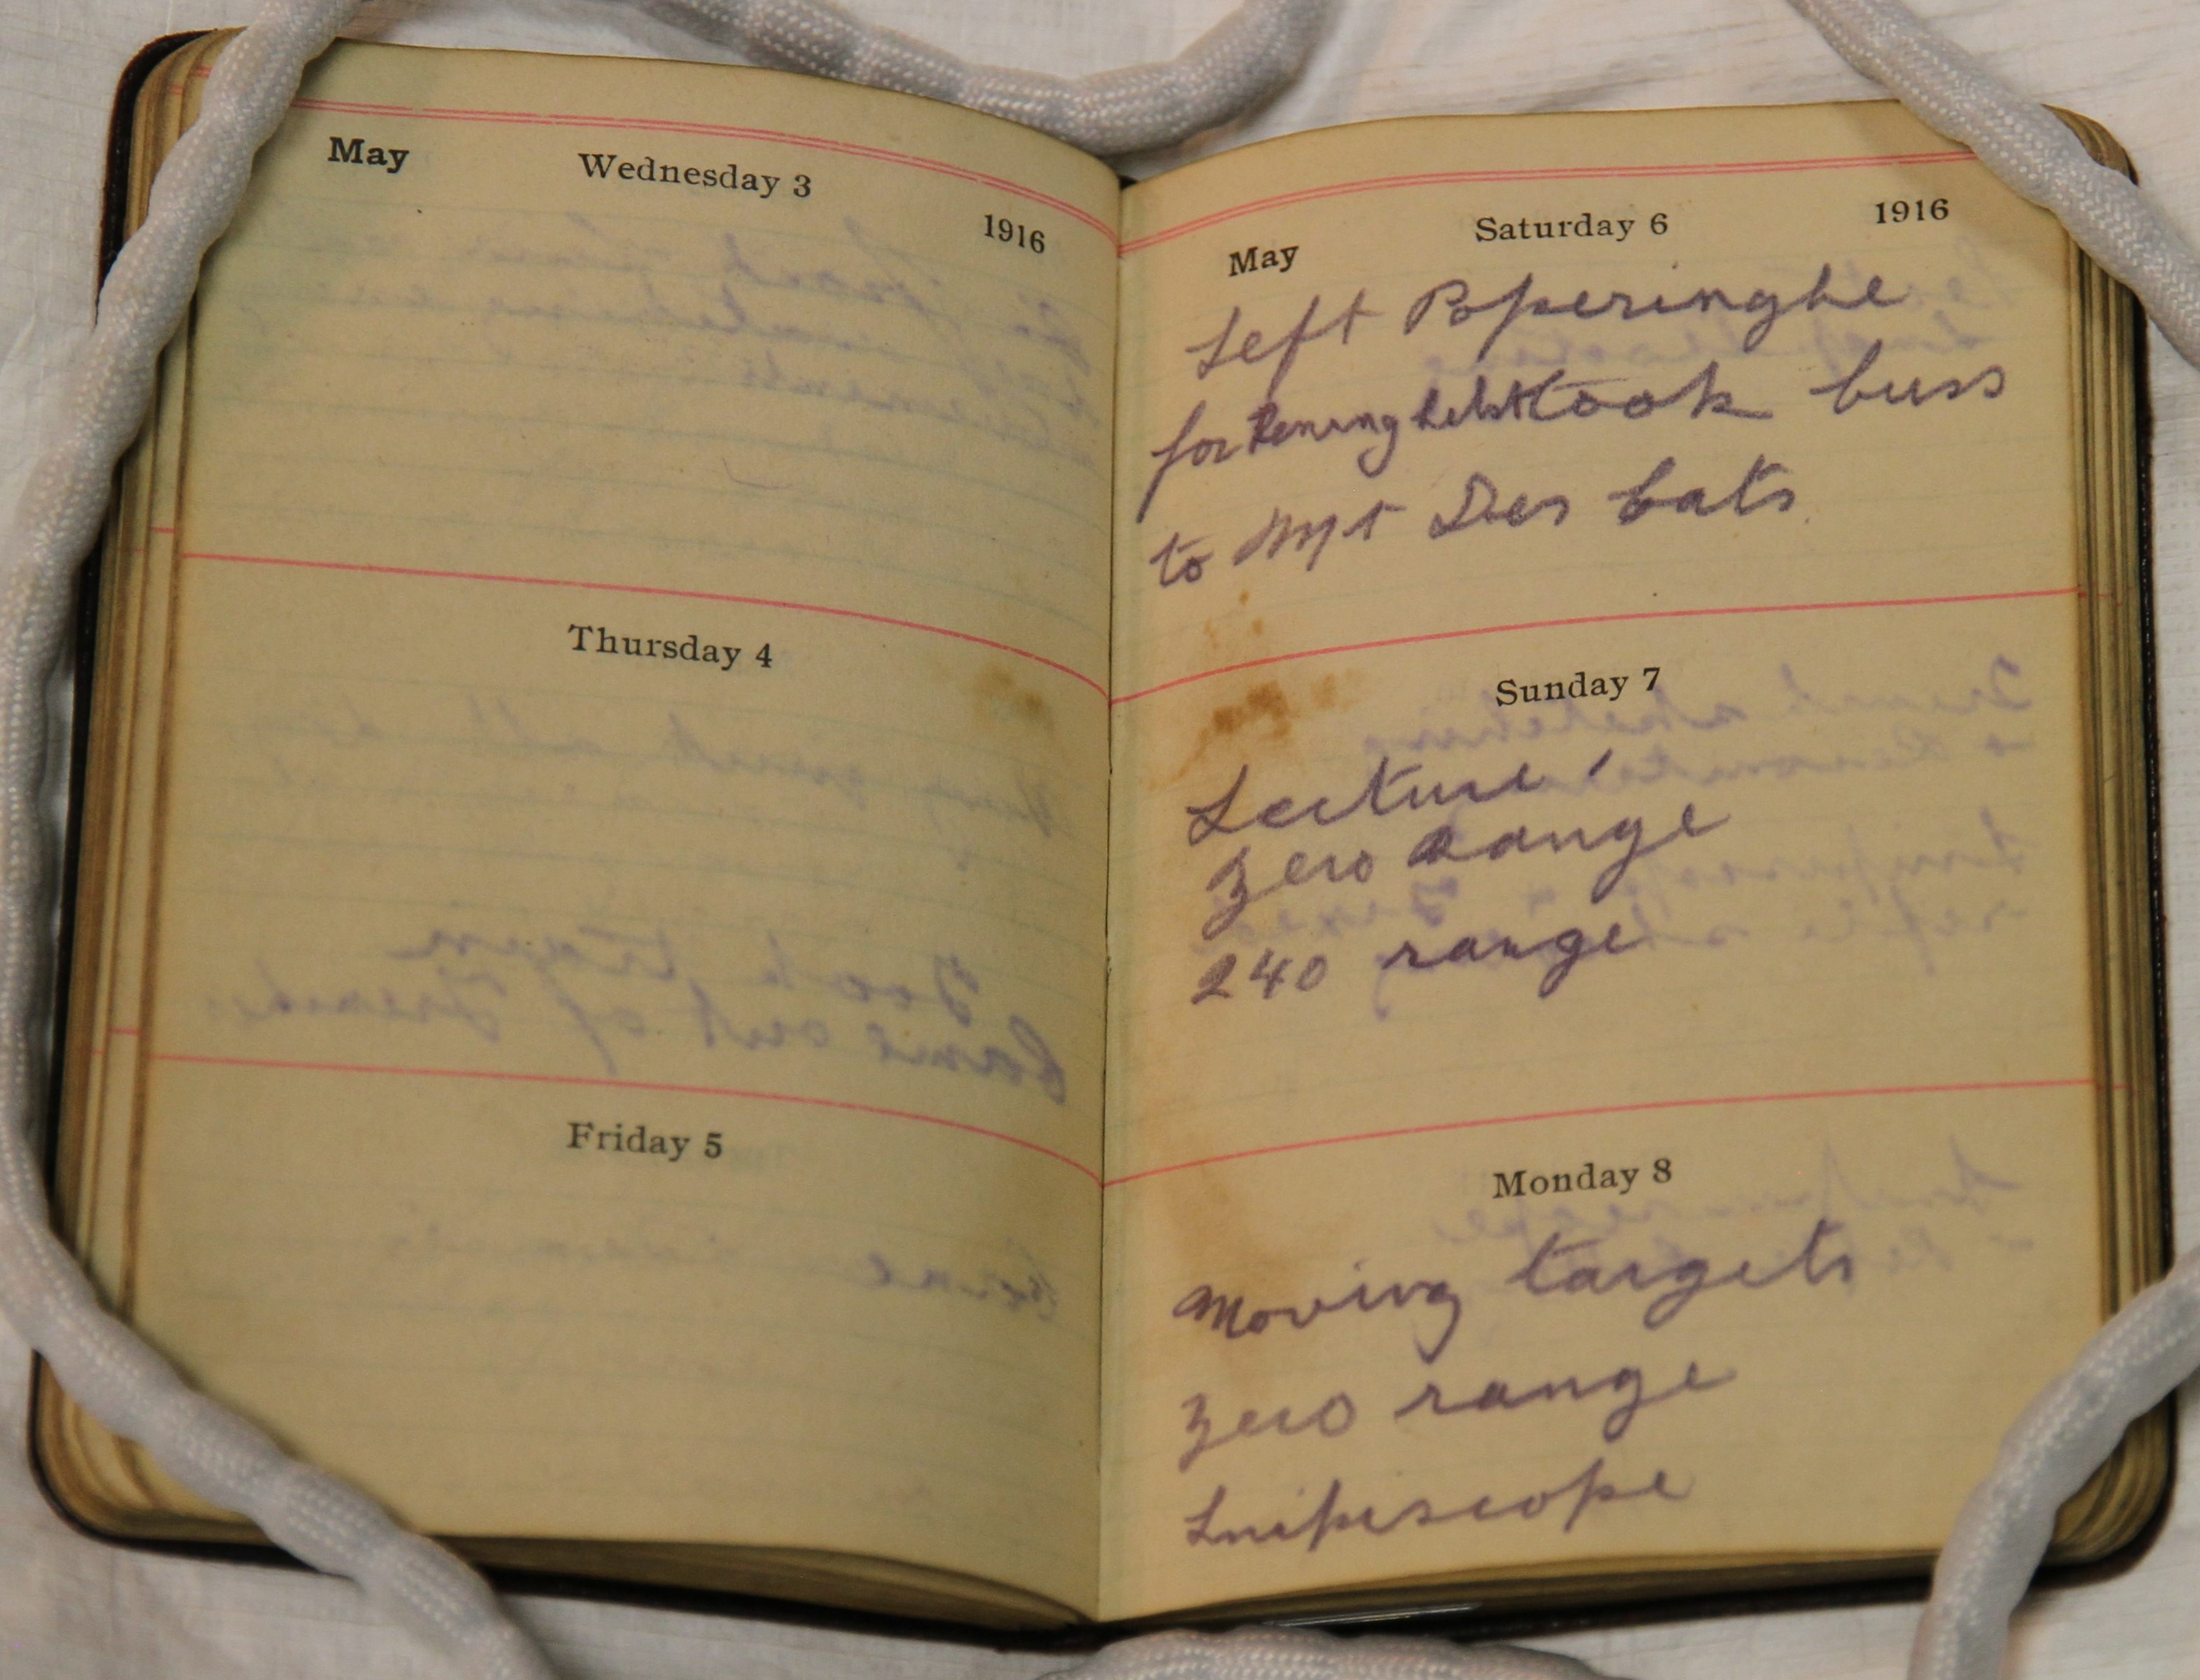 May
Wednesday 3
1916
Thursday 4
Friday 5
May
Saturday 6
1916
Left Poperinghe
for Reninghelst took buss
to Mt Des Cats
Sunday 7
Lecture,
Zero Range
240 range
Monday 8
Moving targets
Zero range
Snipescope